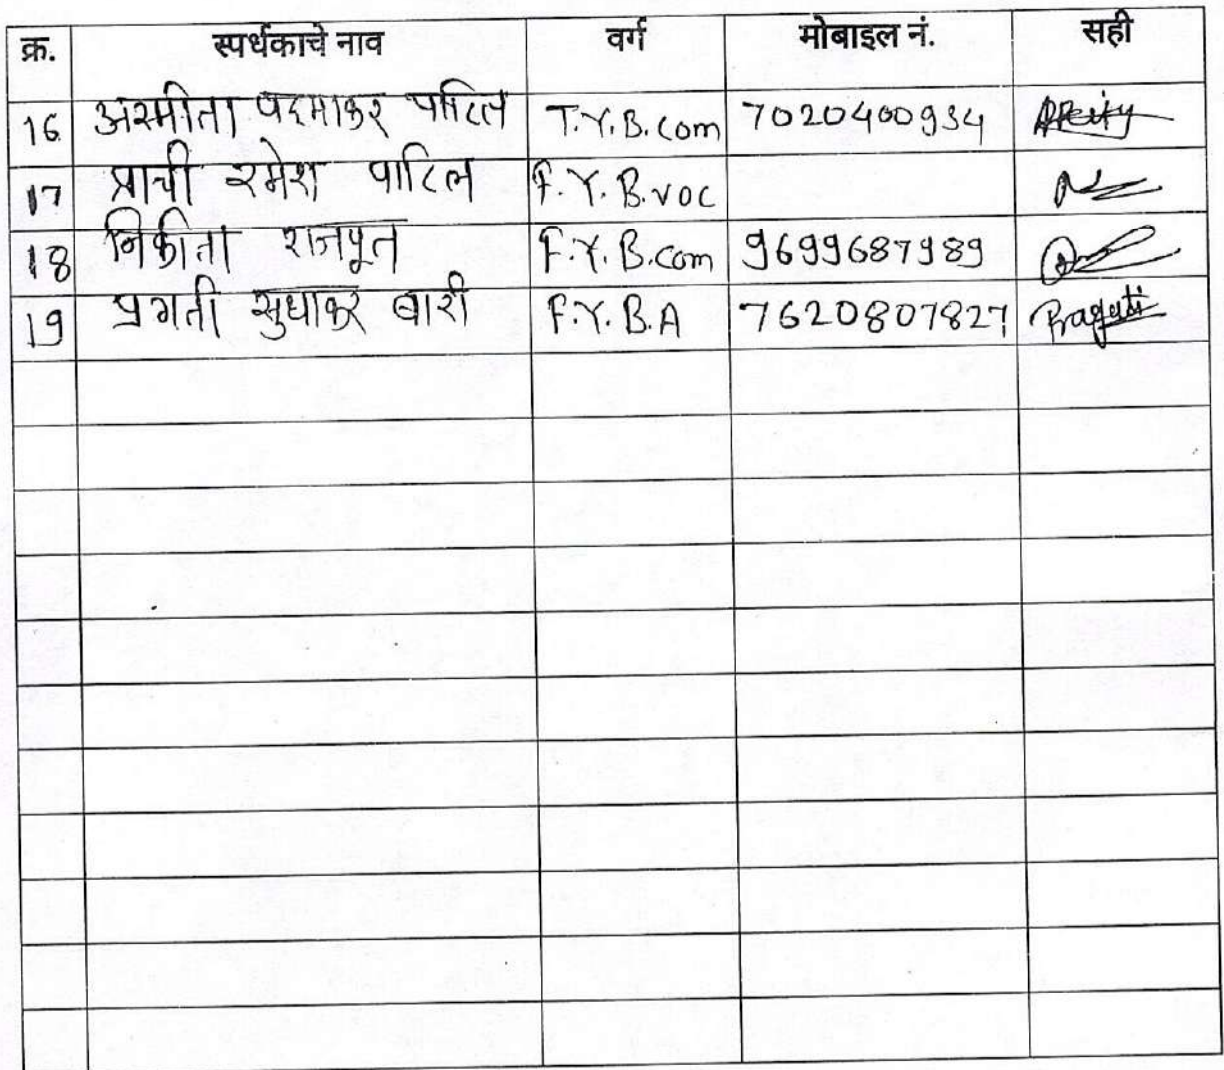 क्र. स्पर्धकाचे नाव वर्ग मोबाइल नं. सही
16 अस्मीता पदमाकर पाटिल T.Y.B.com 7020400934
17 प्राची रमेश पाटिल F.Y.B.voc
18 निकीता राजपूत F.Y.B.com 9699687989
19 प्रगती सुधाकर बारी F.Y.B.A 7620807827 Pragati